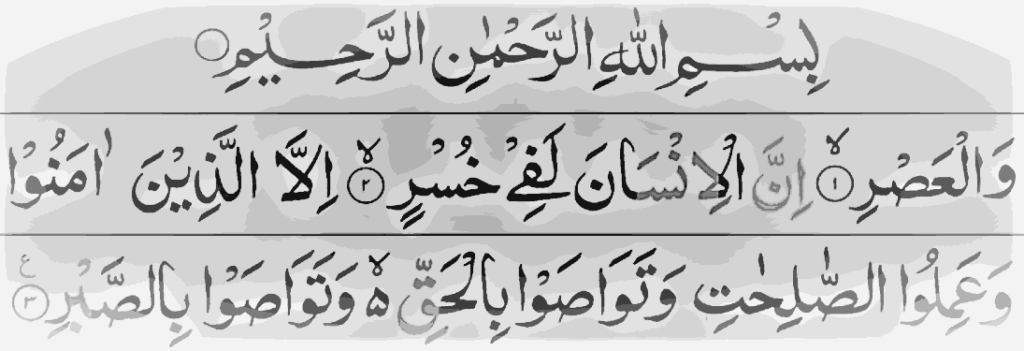 بِسْمِ اللهِ الرَّحْمٰنِ الرَّحِيْمِ
وَالْعَصْرِ ۙ﴿۱﴾ اِنَّ الْاِنْسَانَ لَفِيْ خُسْرٍ ۙ﴿۲﴾ اِلَّا الَّذِيْنَ اٰمَنُوْا
وَعَمِلُوا الصّٰلِحٰتِ وَتَوَاصَوْا بِالْحَقِّ ۙ۵ وَتَوَاصَوْا بِالصَّبْرِ ﴿۳﴾ ع